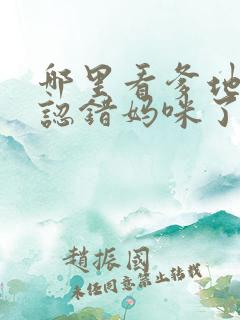 哪里看爹地
認錯妈咪了
趙振國
未任同意禁止转载